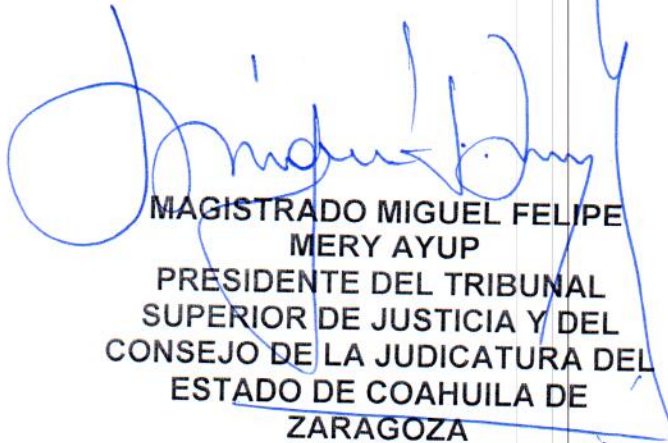 MAGISTRADO MIGUEL FELIPE
MERY AYUP
PRESIDENTE DEL TRIBUNAL
SUPERIOR DE JUSTICIA Y DEL
CONSEJO DE LA JUDICATURA DEL
ESTADO DE COAHUILA DE
ZARAGOZA